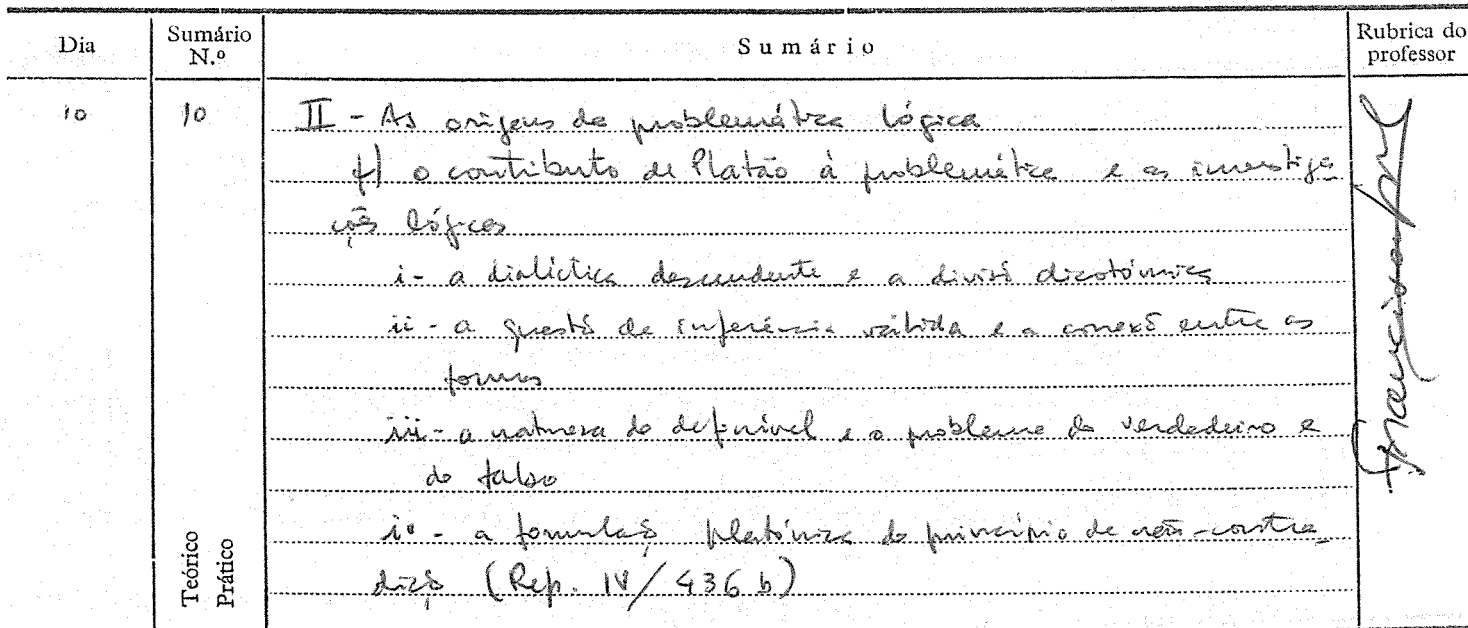 Dia Sumário N.º Sumário Rubrica do professor
10 10 II - As origens da problemática lógica
f) o contributo de Platão à problemática e as investiga-
ções lógicas
i - a dialéctica descendente e a divisão dicotómica
ii - a questão da inferência válida e a conexão entre as
formas
iii - a natureza do definível e o problema do verdadeiro e
do falso
iv - a formulação platónica do princípio de não-contra-
dição (Rep. IV/436 b)
Teórico
Prático